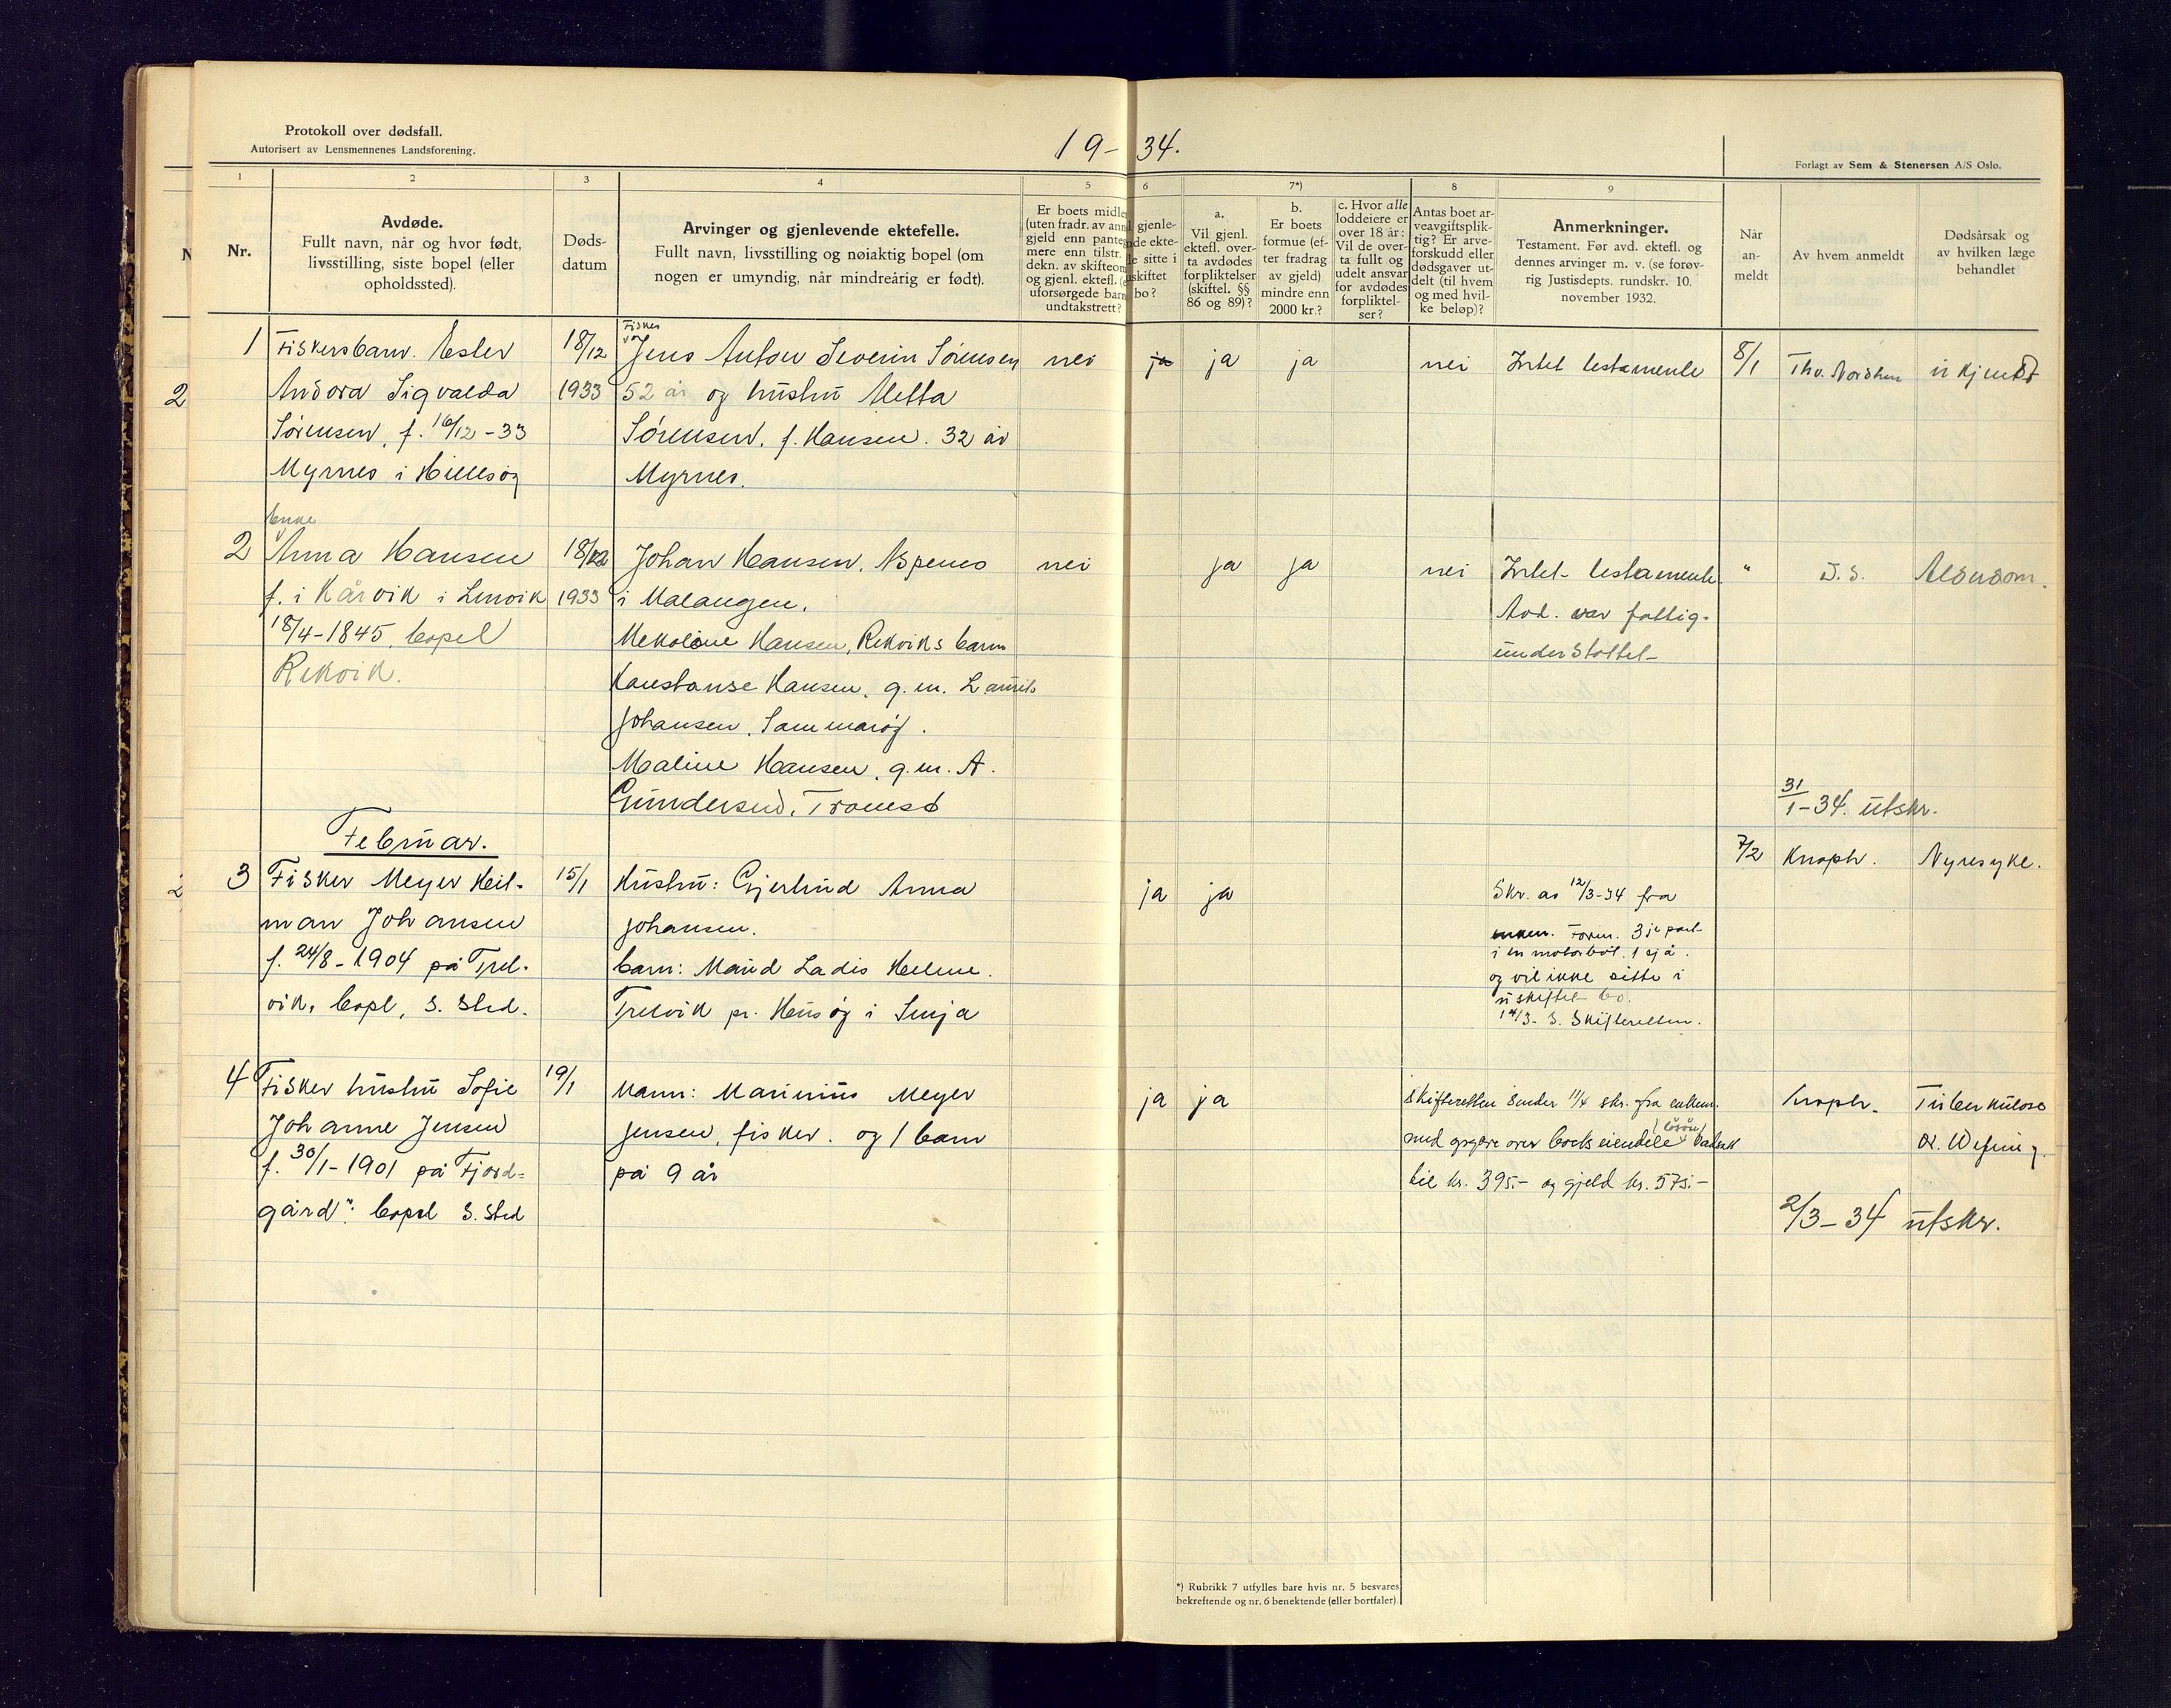 Protokoll over dødsfall.
Autorisert av Lensmennenes Landsforening.
19-34.
Forlagt av Sem & Stenersen A/S Oslo.
1 2 3 4 5 6 7*) 8 9
Nr.
Avdøde.
Fullt navn, når og hvor født,
livsstilling, siste bopel (eller
opholdssted).
Døds-
datum
Arvinger og gjenlevende ektefelle.
Fullt navn, livsstilling og nøiaktig bopel (om
nogen er umyndig, når mindreårig er født).
Er boets midle
(uten fradr. av ann
gjeld enn panteg
mere enn tilstr.
dekn. av skifteom
og gjenl. ektefl.
uforsørgede barn
undtakstrett?
gjenle-
de ekte-
le sitte i
uskiftet
bo?
a.
Vil gjenl.
ektefl. over-
ta avdødes
forpliktelser
(skiftel. §§
86 og 89)?
b.
Er boets
formue (ef-
ter fradrag
av gjeld)
mindre enn
2000 kr.?
c. Hvor alle
loddeiere er
over 18 år:
Vil de over-
ta fullt og
udelt ansvar
for avdødes
forpliktel-
ser?
Antas boet ar-
veavgiftsplik-
tig? Er arve-
forskudd eller
dødsgaver ut-
delt (til hvem
og med hvil-
ke beløp)?
Anmerkninger.
Testament. Før avd. ektefl. og
dennes arvinger m. v. (se forøv-
rig Justisdepts. rundskr. 10.
november 1932.
Når
an-
meldt
Av hvem anmeldt
Dødsårsak og
av hvilken læge
behandlet
1 Fiskersbarn. Ester 18/12 Fisker Jens Anton Severin Sørensen nei ja ja ja nei Intet testamente 8/1 Thv. Nordhus ukjendt
Andora Sigvalda 1933 52 år og hustru Aletta
Sørensen, f. 16/12-33 Sørensen, f. Hansen. 32 år
Myrnes i Hillesøy Myrnes.
enke
2 Anna Hansen 18/12 Johan Hansen, Aspenes nei ja ja nei Intet testamente. " D. s. Alderdom.
f. i Kårvik i Lenvik 1933 i Malangen. Avd. var fattig-
18/4-1845, bopel Mekoline Hansen, Rekviks barn understøttet
Rekvik. Konstanse Hansen, g.m. Laurits
Johansen, Sommarøy.
Maline Hansen, g.m. A.
Gundersen, Tromsø
31/1-34. utskr.
Februar.
3 Fisker Meyer Heil- 15/1 Hustru: Gjerhud Anna ja ja 7/2 Knoph. Nyresyke.
man Johansen Johansen.
f. 24/8-1904 på Trel- barn: Maud Ladis Helene.
vik, bopl, s. sted. Trelvik pr. Husøy i Senja
Skr. av 12/3-34 fra
enken. Form. 3je part
i en motorbåt, 1 sjå.
og vil ikke sitte i
uskiftet bo.
14/3- s. Skifteretten.
4 Fisker hustru Sofie 19/1 Mann: Marinius Meyer ja ja Skifteretten sender 11/4 skr. fra enkem. Knoph. Tuberkulose
Johanne Jensen Jensen, fisker. og 1 barn med opgave over boets eiendele (løsøre) dr. Wefring.
f. 30/1-1901 på Fjord- på 9 år til kr. 395.- og gjeld kr. 575.-
gård": bopel s. sted
2/3-34 utskr.
*) Rubrikk 7 utfylles bare hvis nr. 5 besvares
bekreftende og nr. 6 benektende (eller bortfaler).